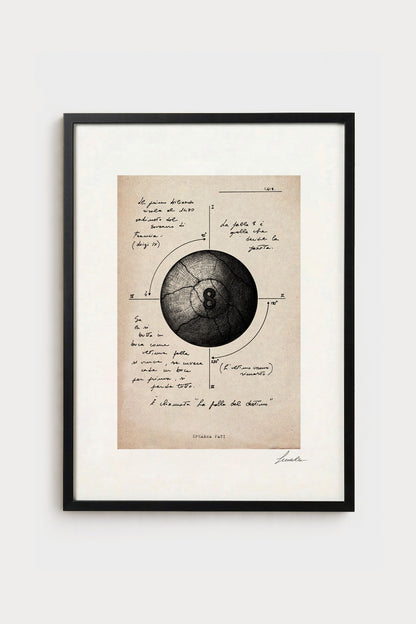 Il primo biliardo
risale al 1480
ordinato dal
sovrano di
Francia.
(Luigi IX)
I
90°
La palla 8 è
quella che
decide la
partita.
180°
II
Se
la si
butta in
buca come
ultima palla
si vince, se invece
cade in buca
per prima, si
perde tutto.
270°
III
È chiamata "La palla del destino"